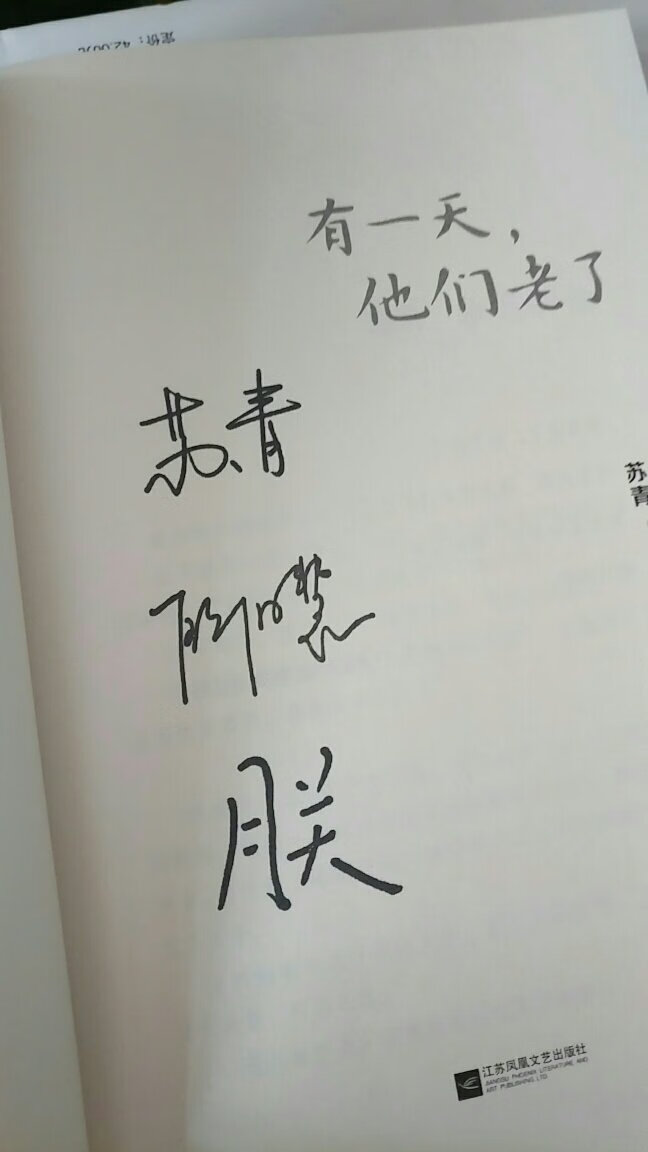 定价：42.00元
有一天，
他们老了
苏青
苏
青
朕
江苏凤凰文艺出版社
JIANGSU PHOENIX LITERATURE AND
ART PUBLISHING, LTD